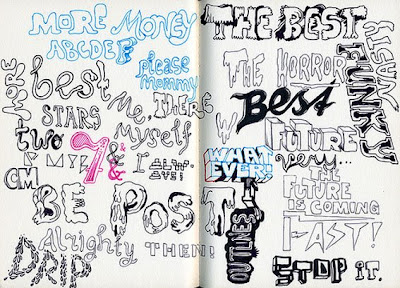 MORE MONEY
ABCDEF
please mommy
MORE
best
Me,
THERE
STARS
two
Myself
& MY
7
&
I
CM
BE POST IT
Alrighty THEN!
DRIP
THE BEST
THE HORROR
NASTY
FUNKY
Best
W
FUTURE
WHAT EVER!
very...
THE FUTURE IS COMING
FAST!
OUTLINES
STOP IT.